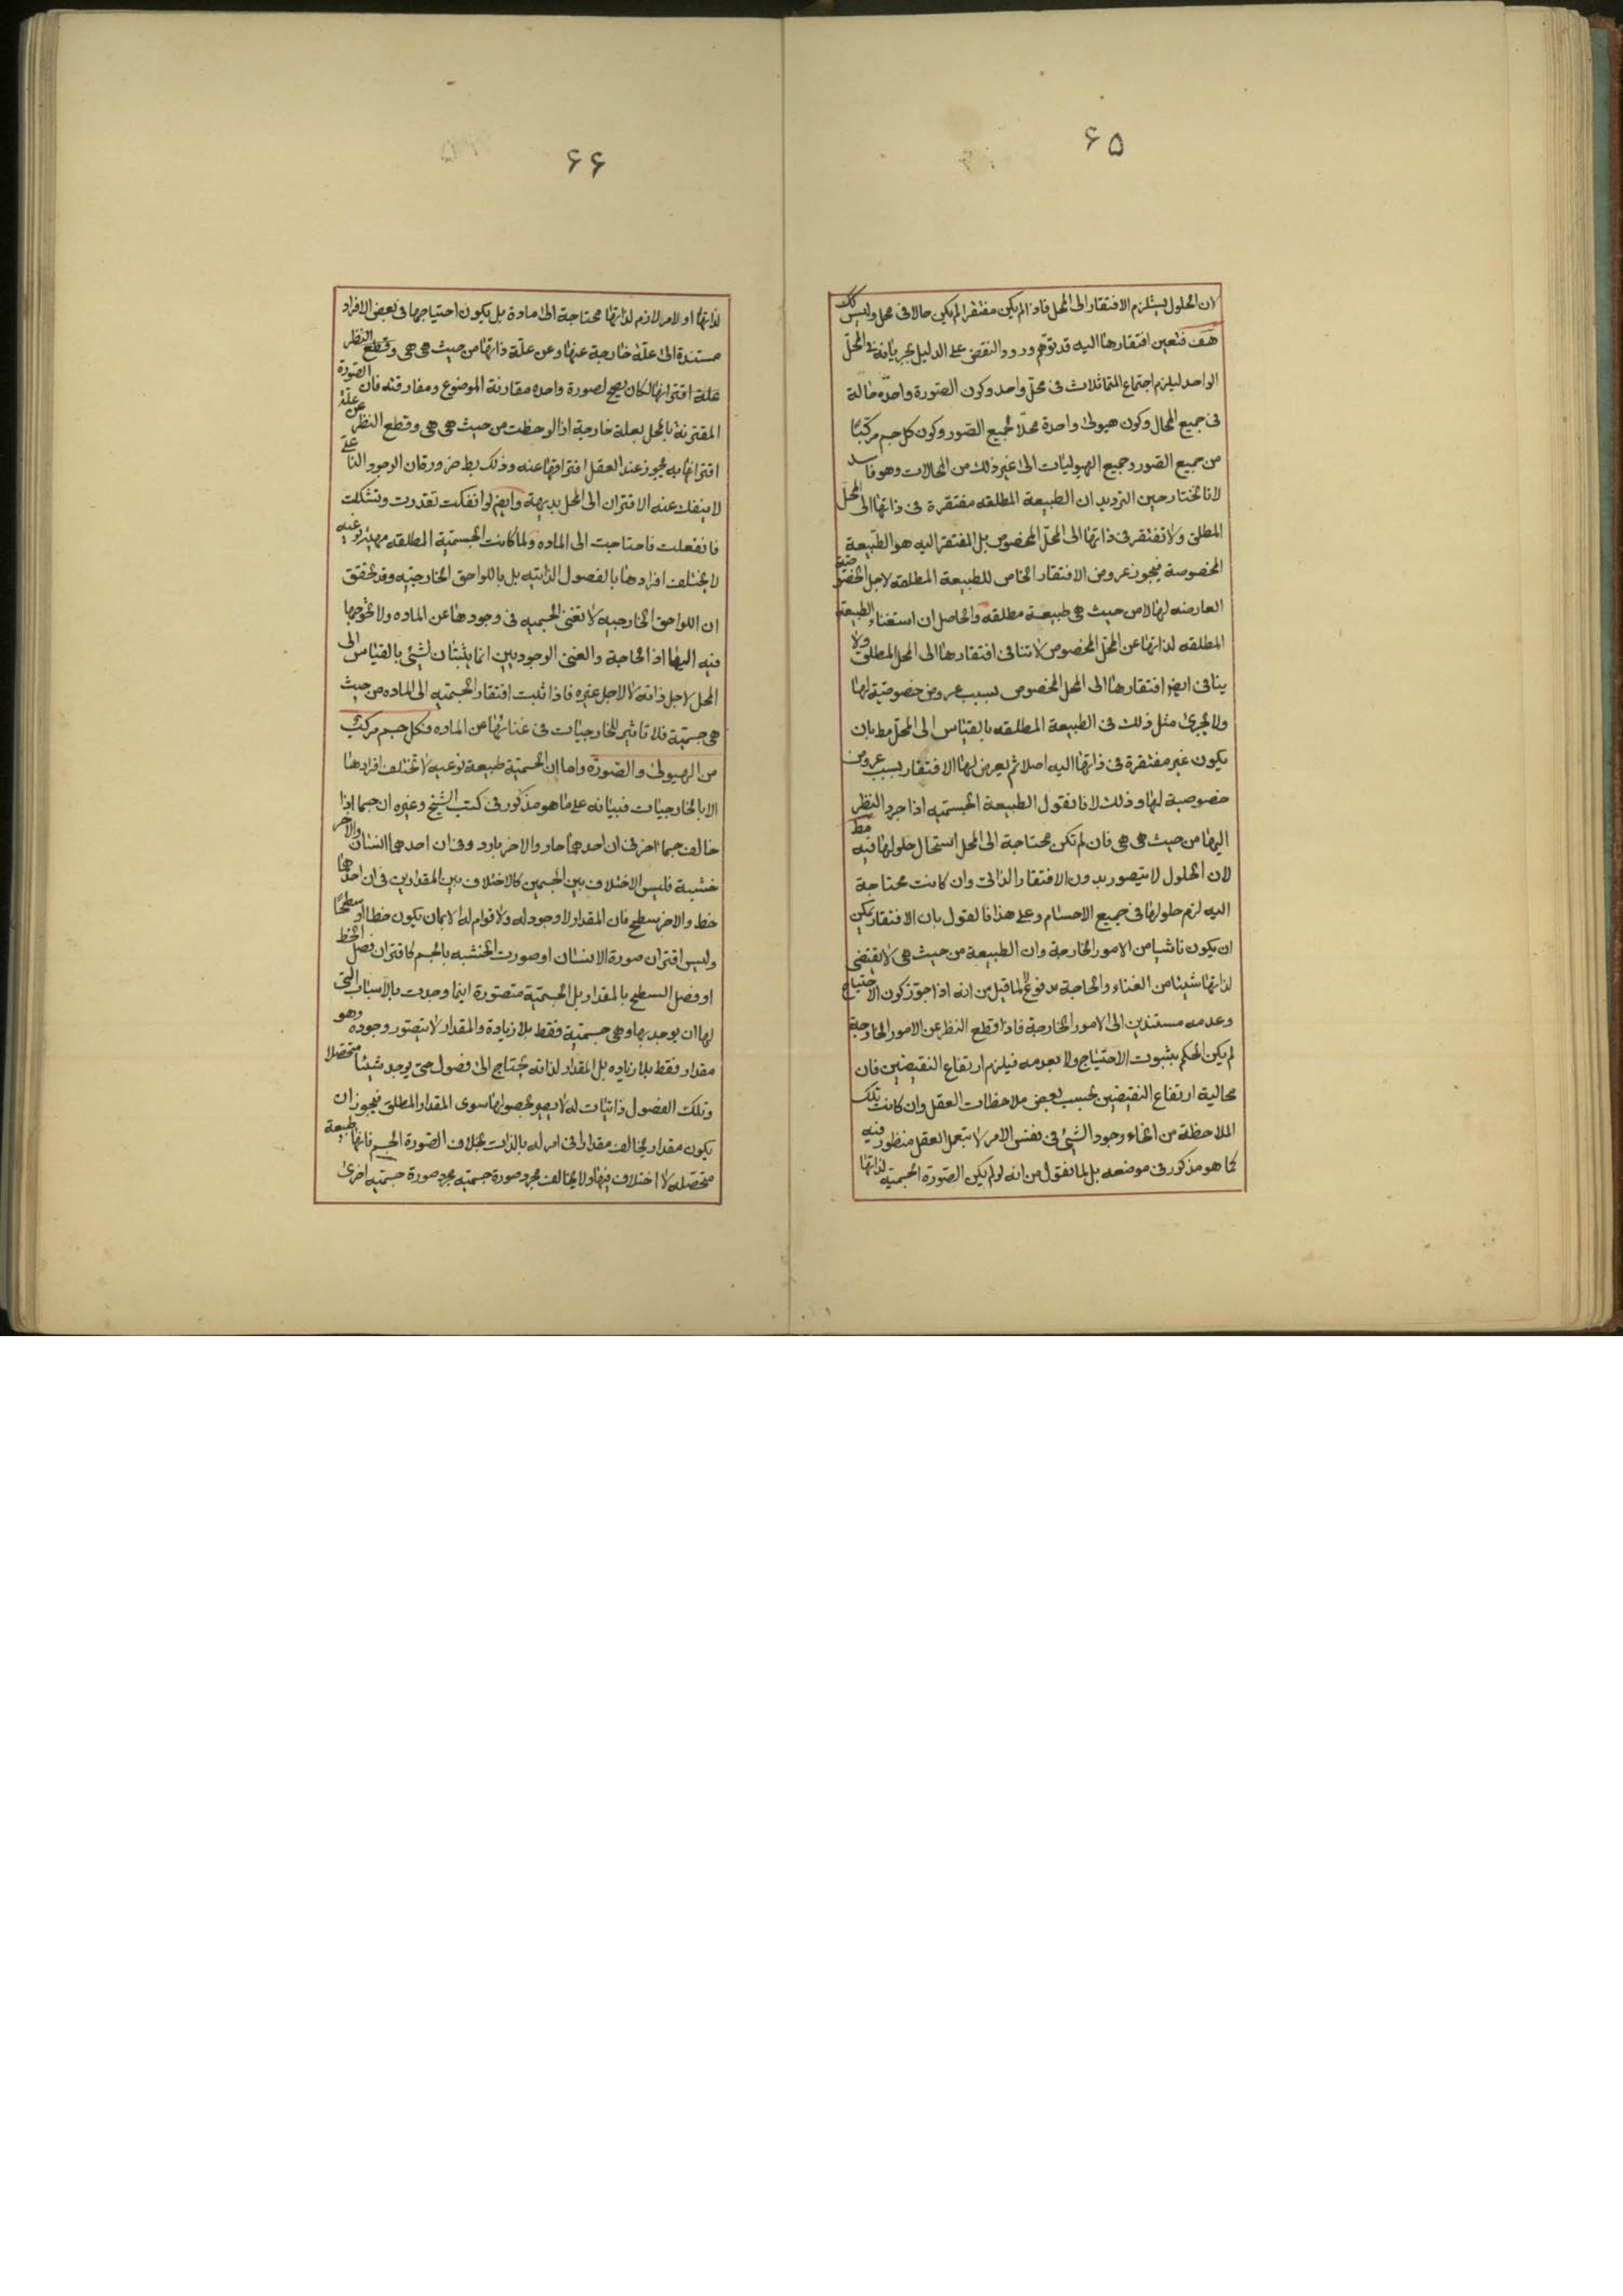 ۶۵
لان الحلول يستلزم الافتقار الى المحل فاذا لم يكن مفتقرا لم يكن حالا فى محل وليس كك
هف فتعين افتقارها اليه قد توهم ورود النقض على الدليل بجريانه فى المحل
الواحد ليلزم اجتماع المتماثلات فى محل واحد وكون الصورة واحدة حالة
فى جميع المحال وكون هيولى واحدة محلا لجميع الصور وكون كل جسم مركبا
من جميع الصور وجميع الهيوليات الى غير ذلك من المحالات وهو فاسد
لانا نختار حين الترديد ان الطبيعة المطلقه مفتقرة فى ذاتها الى المحل
المطلق ولا تفتقر فى ذاتها الى المحل المخصوص بل المفتقر اليه هو الطبيعة
المخصوصة فيجوز عروض الافتقار الخاص للطبيعة المطلقه لاجل الخصوصية
العارضه لها لا من حيث هى طبيعة مطلقه والحاصل ان استغناء الطبيعة
المطلقه لذاتها عن المحل المخصوص لا تنافى افتقارها الى المحل المطلق ولا
ينافى ايض افتقارها الى المحل المخصوص بسبب عروض خصوصية لها
ولا يجرى مثل ذلك فى الطبيعة المطلقه بالقياس الى المحل مط بان
يكون غير مفتقرة فى ذاتها اليه اصلا ثم يعرض لها الافتقار بسبب عروض
خصوصية لها وذلك لانا نقول الطبيعة الجسميه اذا جرد النظر
اليها من حيث هى هى فان لم تكن محتاجة الى المحل استحال حلولها فيه مط
لان الحلول لا يتصور بدون الافتقار الذاتى وان كانت محتاجة
اليه لزم حلولها فى جميع الاجسام وعلى هذا فالقول بان الافتقار يمكن
ان يكون ناشيا من الامور الخارجة وان الطبيعة من حيث هى لا يقتضى
لذاتها شيئا من الغناء والحاجة مدفوع لما قيل من انه اذا جوز كون الاحتياج
وعدمه مستندين الى الامور الخارجة فاذا قطع النظر عن الامور الخارجة
لم يكن الحكم بثبوت الاحتياج ولا بعدمه فيلزم ارتفاع النقيضين فان
محالية ارتفاع النقيضين بحسب بعض ملاحظات العقل وان كانت تلك
الملاحظة من انحاء وجود الشئ فى نفس الامر لا بتعمل العقل منظور فيه
كما هو مذكور فى موضعه بل لما نقول من انه لو لم يكن الصورة الجسمية لذاتها
۶۶
لذاتها او لامر لازم لذاتها محتاجة الى مادة بل يكون احتياجها فى بعض الافراد
مستندة الى علة خارجة عنها وعن علة ذاتها من حيث هى هى وقطع النظر
علة اقترانها لكان يصح لصورة واحده مقارنة الموضوع ومفارقته فان الصورة
المقترنة بالمحل بعلة خارجية اذا لوحظت من حيث هى هى وقطع النظر عن علة
اقترانها به يجوز عند العقل افتراقها عنه وذلك بط ضرورة ان الوجود الناعتى
لا ينفك عنه الاقتران الى المحل بديهة وايض لو انفكت تقدرت وتشكلت
فانفعلت فاحتاجت الى الماده ولما كانت الجسمية المطلقه مهية نوعيه
لا يختلف افرادها بالفصول الذاتيه بل باللواحق الخارجيه وقد تحقق
ان اللواحق الخارجيه لا تغنى الجسميه فى وجودها عن الماده ولا تحوجها
فيه اليها اذ الحاجة والغنى الوجوديين انما يثبتان لشئ بالقياس الى
المحل لاجل ذاته لا لاجل غيره فاذا ثبت افتقار الجسميه الى الماده من حيث
هى جسمية فلا تاثير للخارجيات فى غنائها عن الماده فكل جسم مركب
من الهيولى والصورة واما ان الجسمية طبيعة نوعيه لا تختلف افرادها
الا بالخارجيات فبيانه على ما هو مذكور فى كتب الشيخ وغيره ان جسما اذا
خالف جسما اخر فى ان احدهما حار والاخر بارد وفى ان احدهما انسان والاخر
خشبية فليس الاختلاف بين الجسمين كالاختلاف بين المقدارين فى ان احدهما
خط والاخر سطح فان المقدار لا وجود له ولا قوام له الا بان يكون خطا او سطحا
وليس اقتران صورة الانسان او صورت الخشبه بالجسم كاقتران فصل الخط
او فصل السطح بالمقدار بل الجسمية متصورة انها وجدت بالاسباب التى
لها ان يوجد بها وهى جسمية فقط بلا زيادة والمقدار لا يتصور وجوده وهو
مقدار فقط بلا زياده بل المقدار لذاته يحتاج الى فصول حتى يوجد شيئا متحصلا
وتلك الفصول ذاتيات له لا يصير بحصولها سوى المقدار المطلق فيجوز ان
يكون مقدار يخالف مقدارا فى امر له بالذات بخلاف الصورة الجسم فانها طبيعة
متحصله لا اختلاف فيها ولا يخالف مجرد صورة جسميه مجرد صورة جسميه اخرى